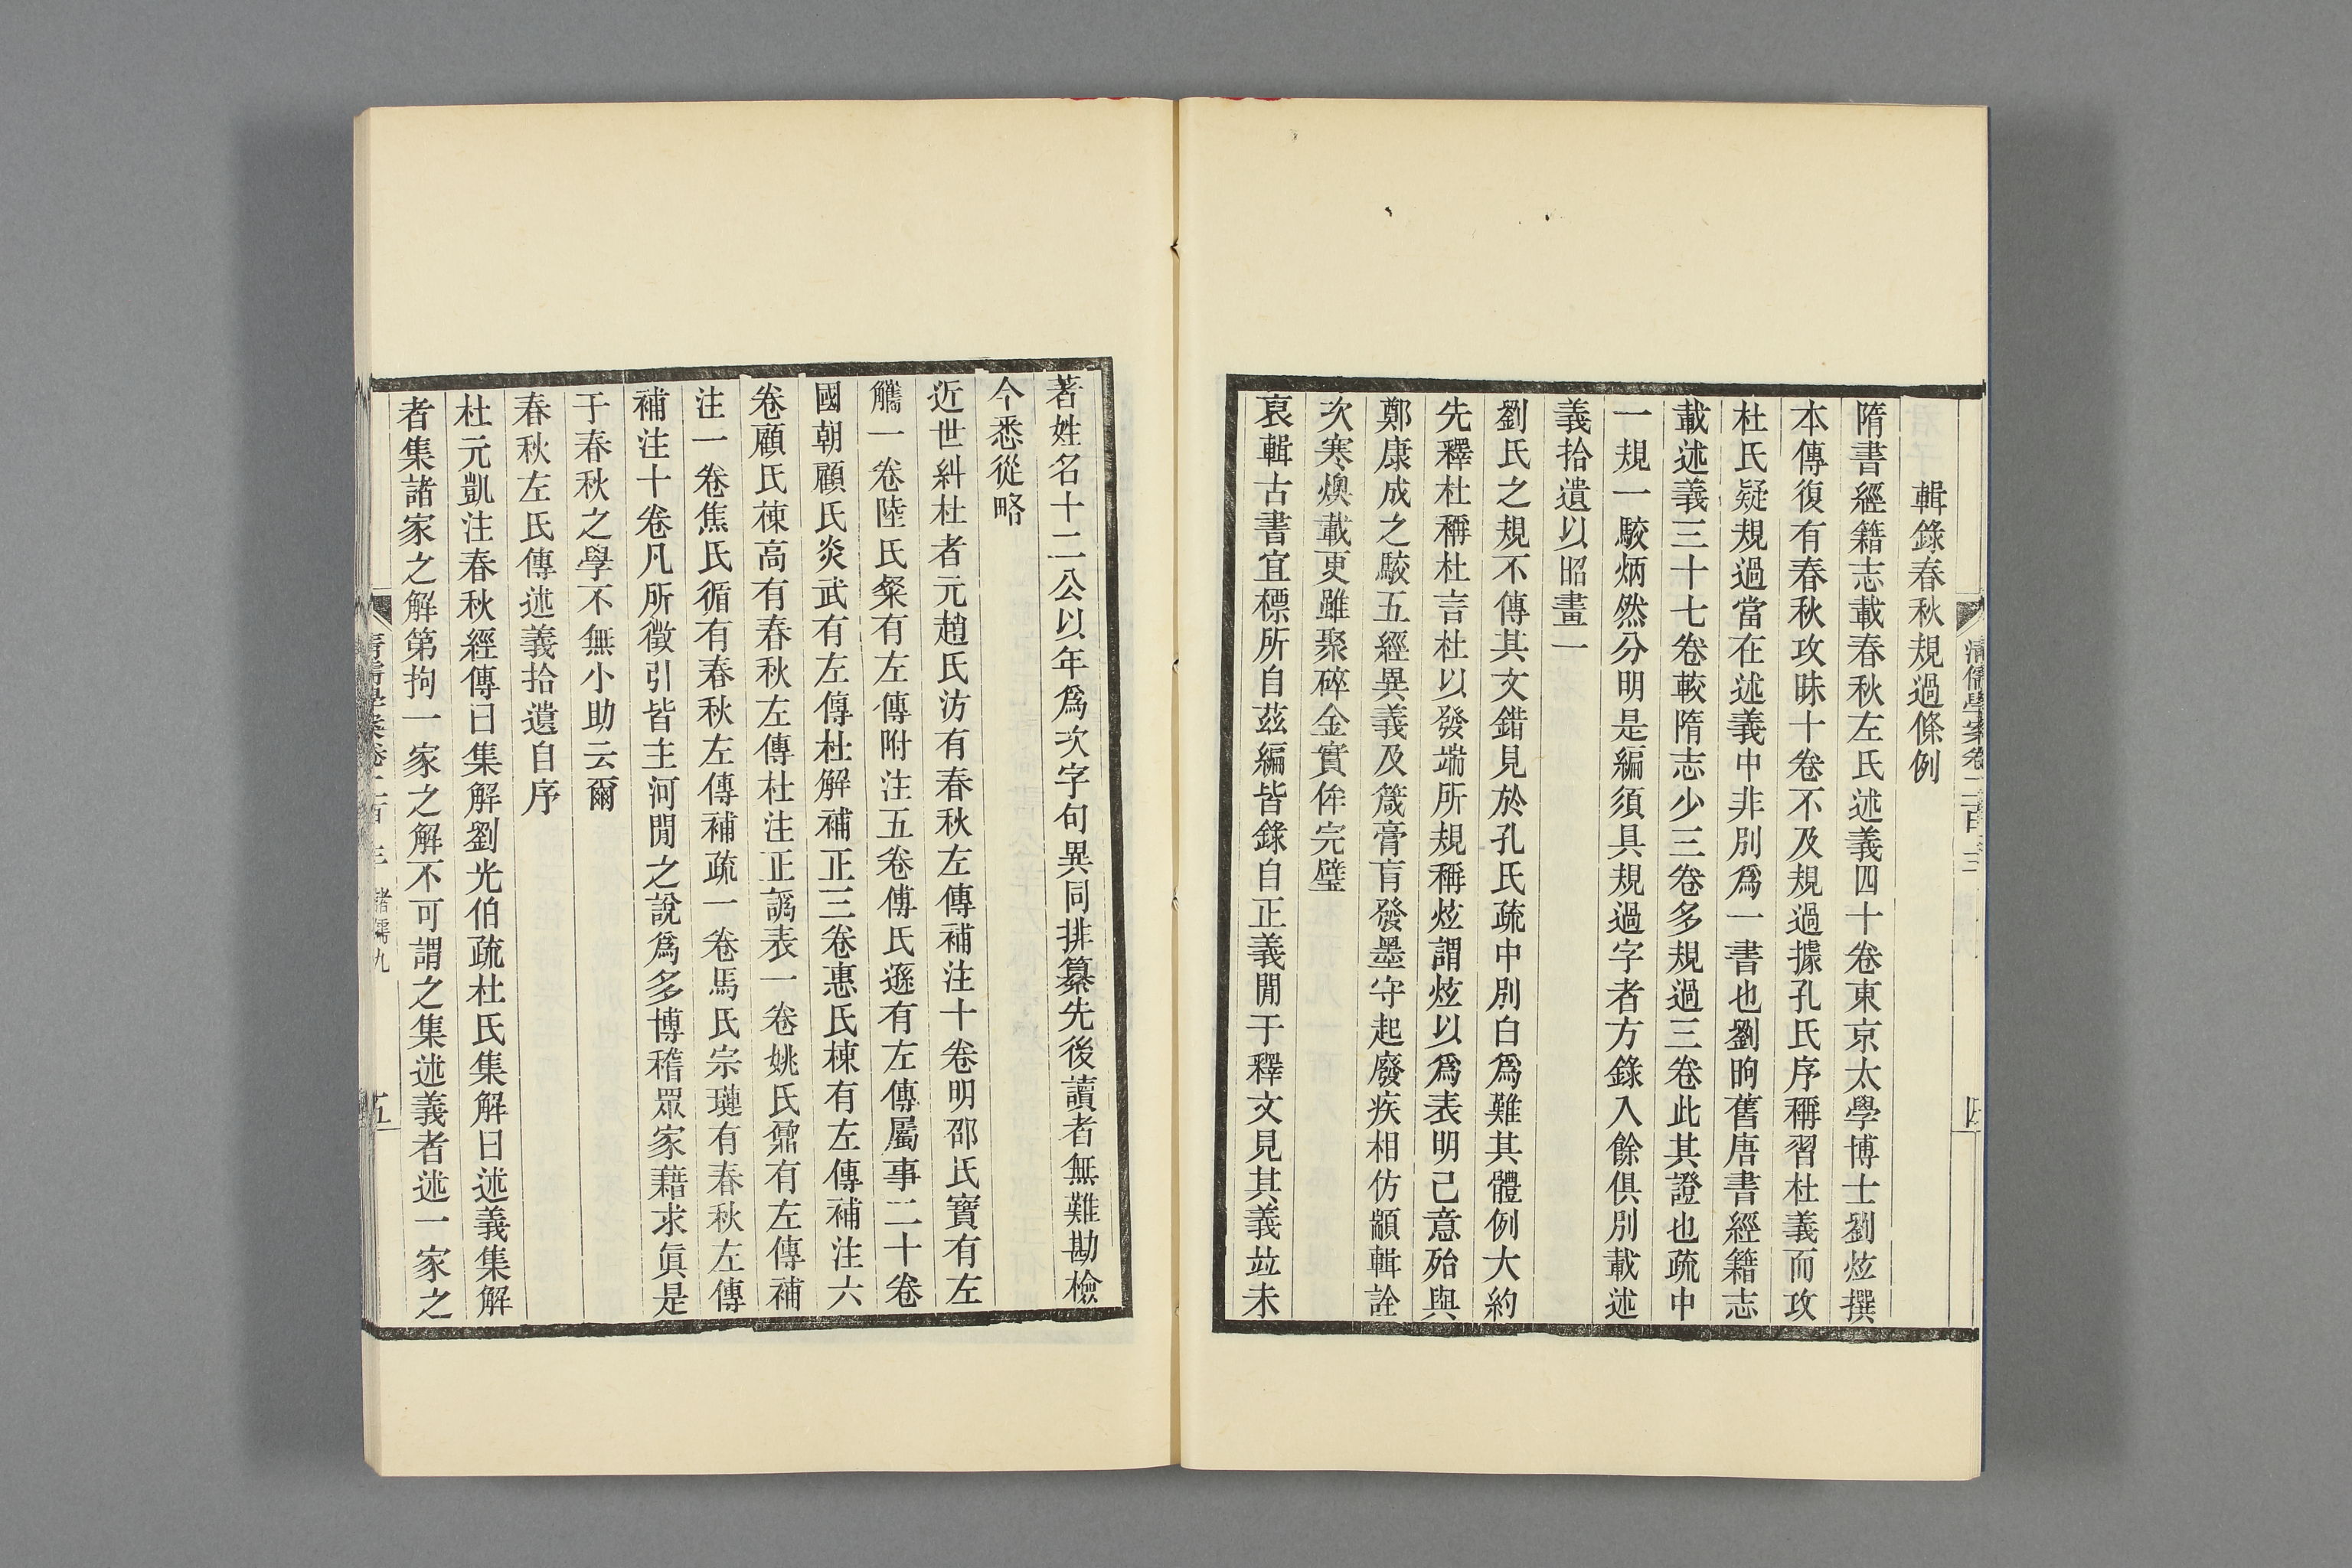 輯錄春秋規過條例
隋書經籍志載春秋左氏述義四十卷東京太學博士劉炫撰
本傳復有春秋攻昧十卷不及規過據孔氏序稱習杜義而攻
杜氏疑規過當在述義中非別爲一書也劉昫舊唐書經籍志
載述義三十七卷較隋志少三卷多規過三卷此其證也疏中
一規一駮炳然分明是編須具規過字者方錄入餘俱別載述
義拾遺以昭畫一
劉氏之規不傳其文錯見於孔氏疏中別白爲難其體例大約
先釋杜稱杜言杜以發端所規稱炫謂炫以爲表明己意殆與
鄭康成之駮五經異義及箴膏肓發墨守起廢疾相仿顓輯詮
次寒燠載更雖聚碎金實侔完璧
裒輯古書宜標所自茲編皆錄自正義閒于釋文見其義竝未
清儒學案卷二百三
四
著姓名十二公以年爲次字句異同排纂先後讀者無難勘檢
今悉從略
近世糾杜者元趙氏汸有春秋左傳補注十卷明邵氏寶有左
觿一卷陸氏粲有左傳附注五卷傅氏遜有左傳屬事二十卷
國朝顧氏炎武有左傳杜解補正三卷惠氏棟有左傳補注六
卷顧氏棟高有春秋左傳杜注正譌表一卷姚氏鼐有左傳補
注一卷焦氏循有春秋左傳補疏一卷馬氏宗璉有春秋左傳
補注十卷凡所徵引皆主河閒之說爲多博稽眾家藉求眞是
于春秋之學不無小助云爾
春秋左氏傳述義拾遺自序
杜元凱注春秋經傳曰集解劉光伯疏杜氏集解曰述義集解
者集諸家之解第拘一家之解不可謂之集述義者述一家之
清儒學案卷二百三 諸儒九
五